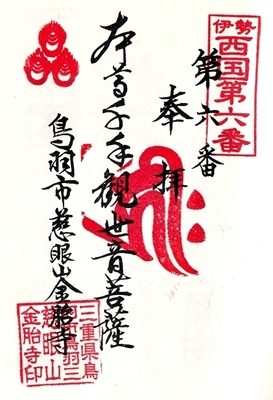 伊勢
西国第六番
第六番
奉拝
本尊千手観世音菩薩
鳥羽市慈眼山金胎寺
三重県鳥
羽市鳥羽三
慈眼山
金胎寺印